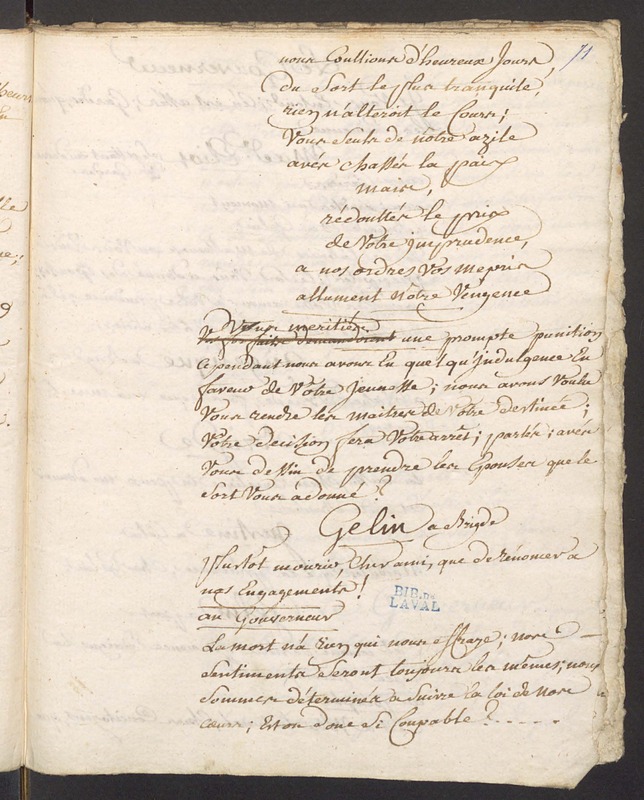 71
nous Coullions d'heureux Jours,
du Sort le plus tranquile,
rien n'alteroit le Cours;
Vous Seuls de nôtre azile
avés chassés la paix
mais,
rédouttés le prix
de Votre jmprudence,
a nos ordres Vos mepris
allument Notre Vengence
Vous meritiés
une prompte punition
Cependant nous avons Eu quelqu'jndulgence En
faveur de Vôtre Jeunesse; nous avons Voulu
Vous rendre les maitres de Votre destinée;
Votre decision fera Votre arrêt; parlés; avés
Vous de Vin de prendre les Epouses que le
Sort Vous a donné?
Gelin a Brigde
Plustot mourir, Cher ami, que de rénoncer a
nos Engagements!
au Gouverneur
La mort n'a rien qui nous effraze; nos
Sentiments Seront toujours les mêmes; nous
Sommes déterminés a Suivre la loi de nos
cœurs; Est on donc Si Coupable?.....
BIB. DE
LAVAL